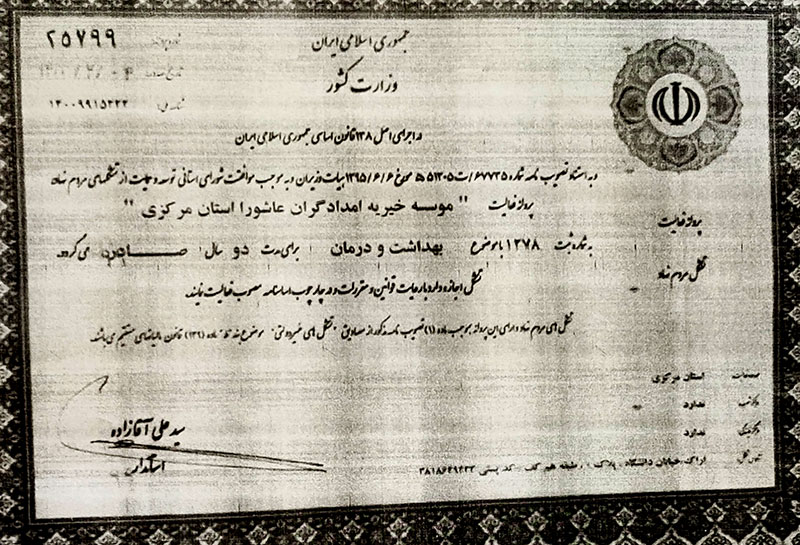 جمهوری اسلامی ایران
وزارت کشور
۲۵۷۹۹
۱۴۰۰۹۹۱۵۳۲۲
در اجرای اصل ۱۳۸ قانون اساسی جمهوری اسلامی ایران
و به استناد تصویب نامه شماره ۶۷۷۳۵/ت۵۱۳۰۵ه مورخ ۱۳۹۵/۶/۶ هیات وزیران و به موجب موافقت شورای استانی توسعه و حمایت از تشکلهای مردم نهاد
پروانه فعالیت " موسه خیریه امدادگران عاشورا استان مرکزی "
به شماره ثبت ۱۲۷۸ با موضوع بهداشت و درمان برای مدت دو سال صادر می گردد.
تشکل اجازه دارد با رعایت قوانین و مقررات و در چارچوب اساسنامه مصوب فعالیت نماید.
تشکل های مردم نهاد دارای این پروانه بموجب ماده (۱) تصویب نامه مذکور از مصادیق "تشکل های غیردولتی" موضوع بند ماده (۱۳۹) قانون مالیاتهای مستقیم می باشند.
پروانه فعالیت
تشکل مردم نهاد
استان مرکزی
ندارد
ندارد
اراک، خیابان دانشگاه ، پلاک ۰ ، طبقه هم کف ، کد پستی ۳۸۱۸۶۴۹۴۳۳
سید علی آقازاده
استاندار